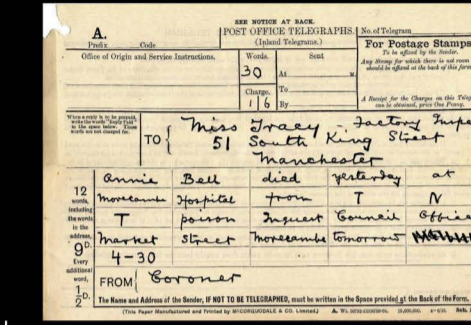 SEE NOTICE AT BACK.
A.
POST OFFICE TELEGRAPHS.
(Inland Telegrams.)
No. of Telegram
Prefix Code
Office of Origin and Service Instructions.
Words.
30
Sent
At M.
To
Charge.
1/6
By
For Postage Stamps
To be affixed by the Sender.
Any Stamp for which there is not room
should be affixed at the back of this form
A Receipt for the Charges on this Teleg
can be obtained, price One Penny.
When a reply is to be prepaid,
write the words "Reply Paid"
in the space below. These
words are not charged for.
TO { Miss Tracy Factory Inspe
51 South King Street
Manchester
12
words,
including
the words
in the
address,
9D.
Every
additional
word,
½D.
Annie Bell died yesterday at
Morecambe Hospital from T N
T poison Inquest Council Office
Market Street Morecambe tomorrow
4-30
FROM { Coroner
The Name and Address of the Sender, IF NOT TO BE TELEGRAPHED, must be written in the Space provided at the Back of the Form.
(This Paper Manufactured and Printed by MCCORQUODALE & CO. Limited.)